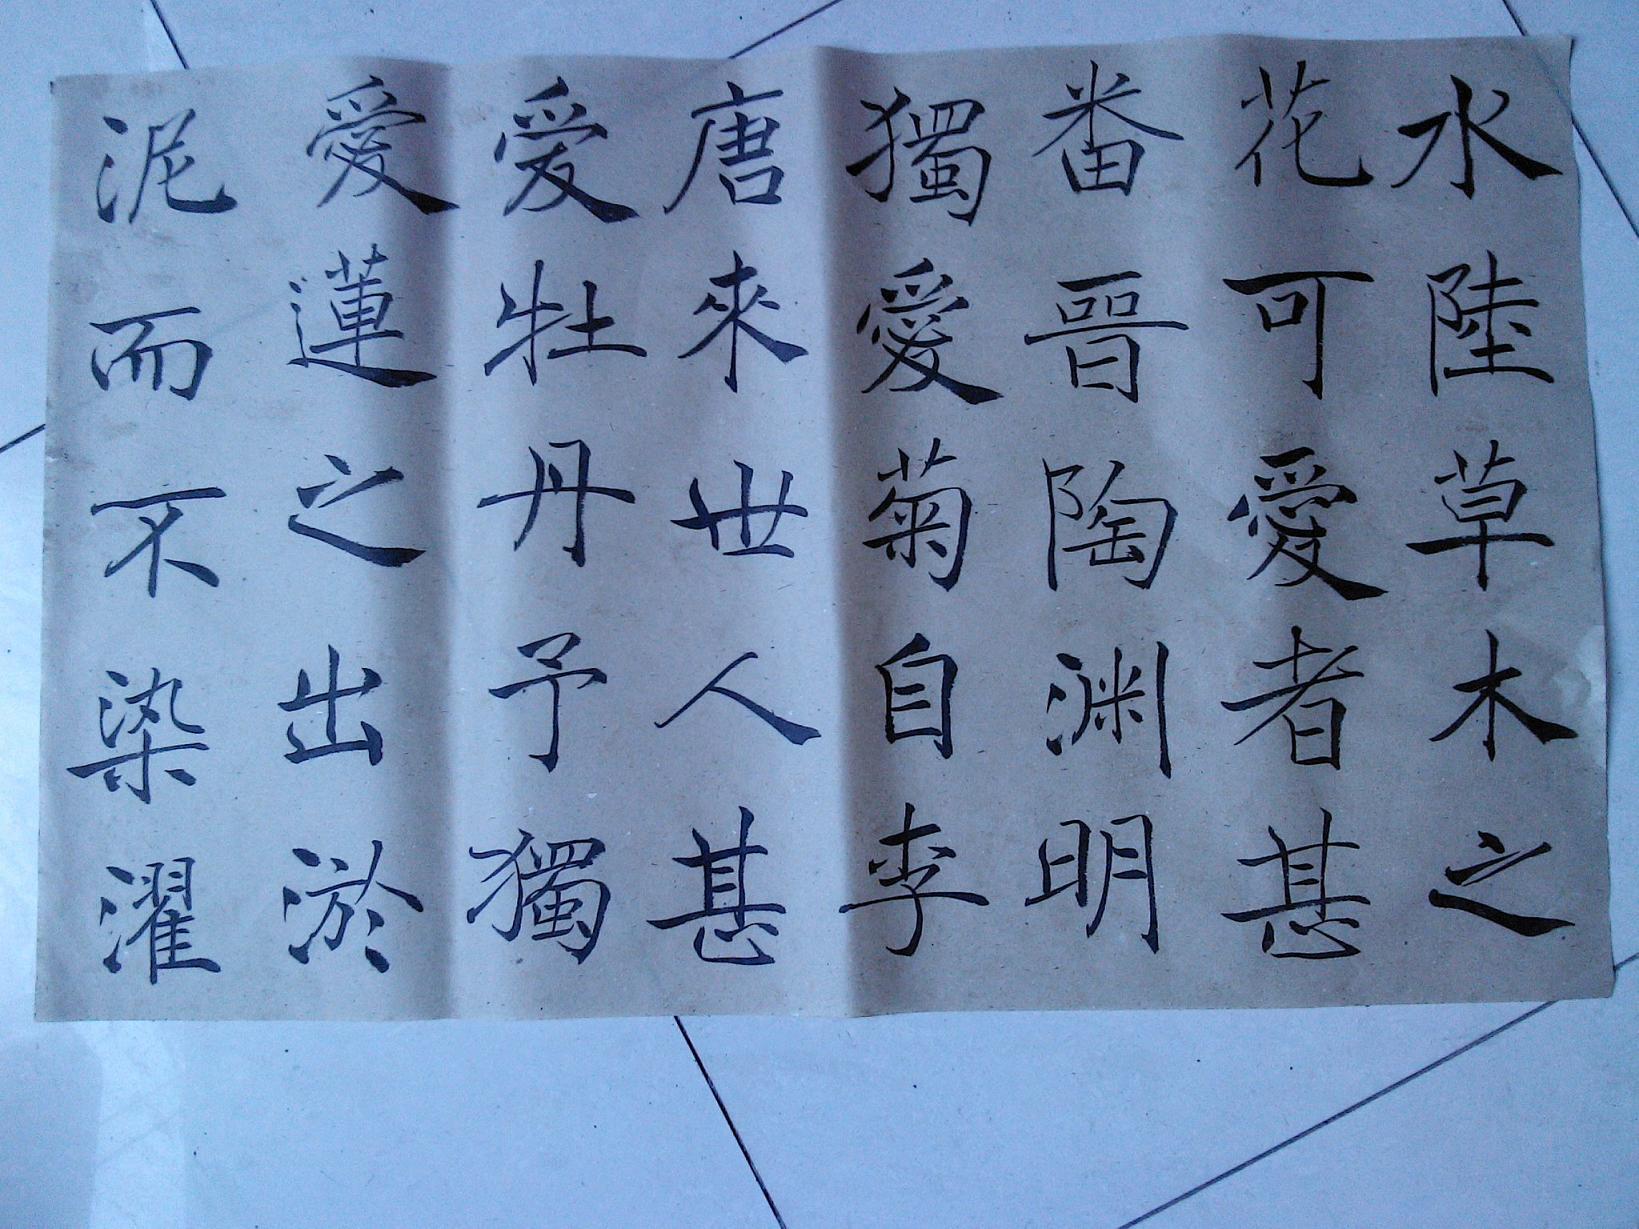 水陸草木之
花可愛者甚
番晉陶渊明
獨愛菊自李
唐來世人甚
爱牡丹予獨
愛蓮之出淤
泥而不染濯